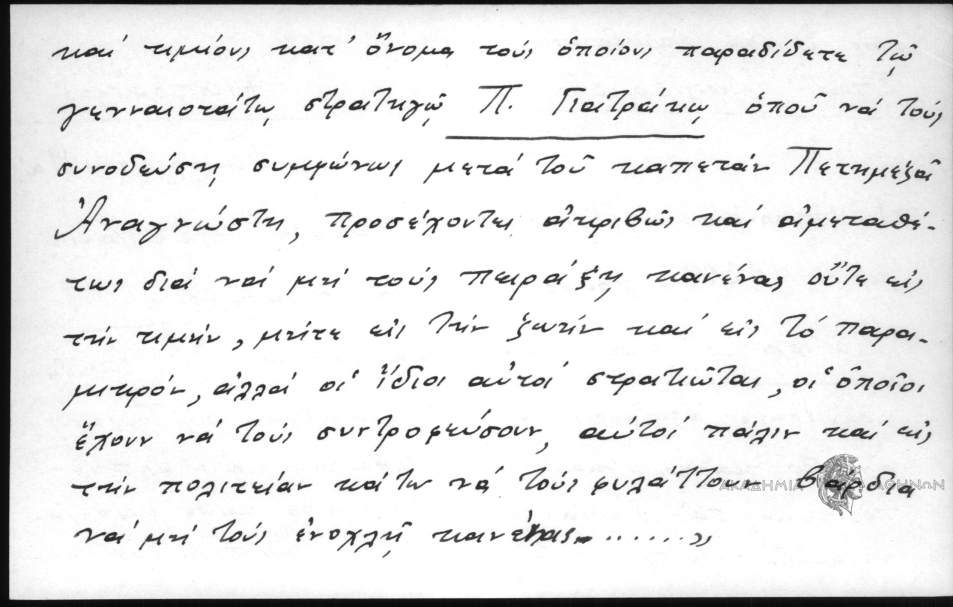 καί τιμίους κατ' ὄνομα τούς ὁποίους παραδίδετε τῷ
γενναιοτάτῳ στρατηγῷ Π. Γιατράκῳ ὁποῦ νά τούς
συνοδεύσῃ συμφώνως μετά τοῦ καπετάν Πετημεζᾶ
Ἀναγνώστη, προσέχοντες ἀκριβῶς καί ἀμεταθέ-
τως διά νά μή τούς πειράξῃ κανένας οὔτε εἰς
τήν τιμήν, μήτε εἰς τήν ζωήν καί εἰς τό παρα-
μικρόν, ἀλλά οἱ ἴδιοι αὐτοί στρατιῶται, οἱ ὁποῖοι
ἔχουν νά τούς συντροφεύσουν, αὐτοί πάλιν καί εἰς
τήν πολιτείαν κάτω νά τούς φυλάττουν βάρδια
νά μή τούς ἐνοχλῇ κανένας.......»
ΑΚΑΔΗΜΙΑ ΑΘΗΝΩΝ